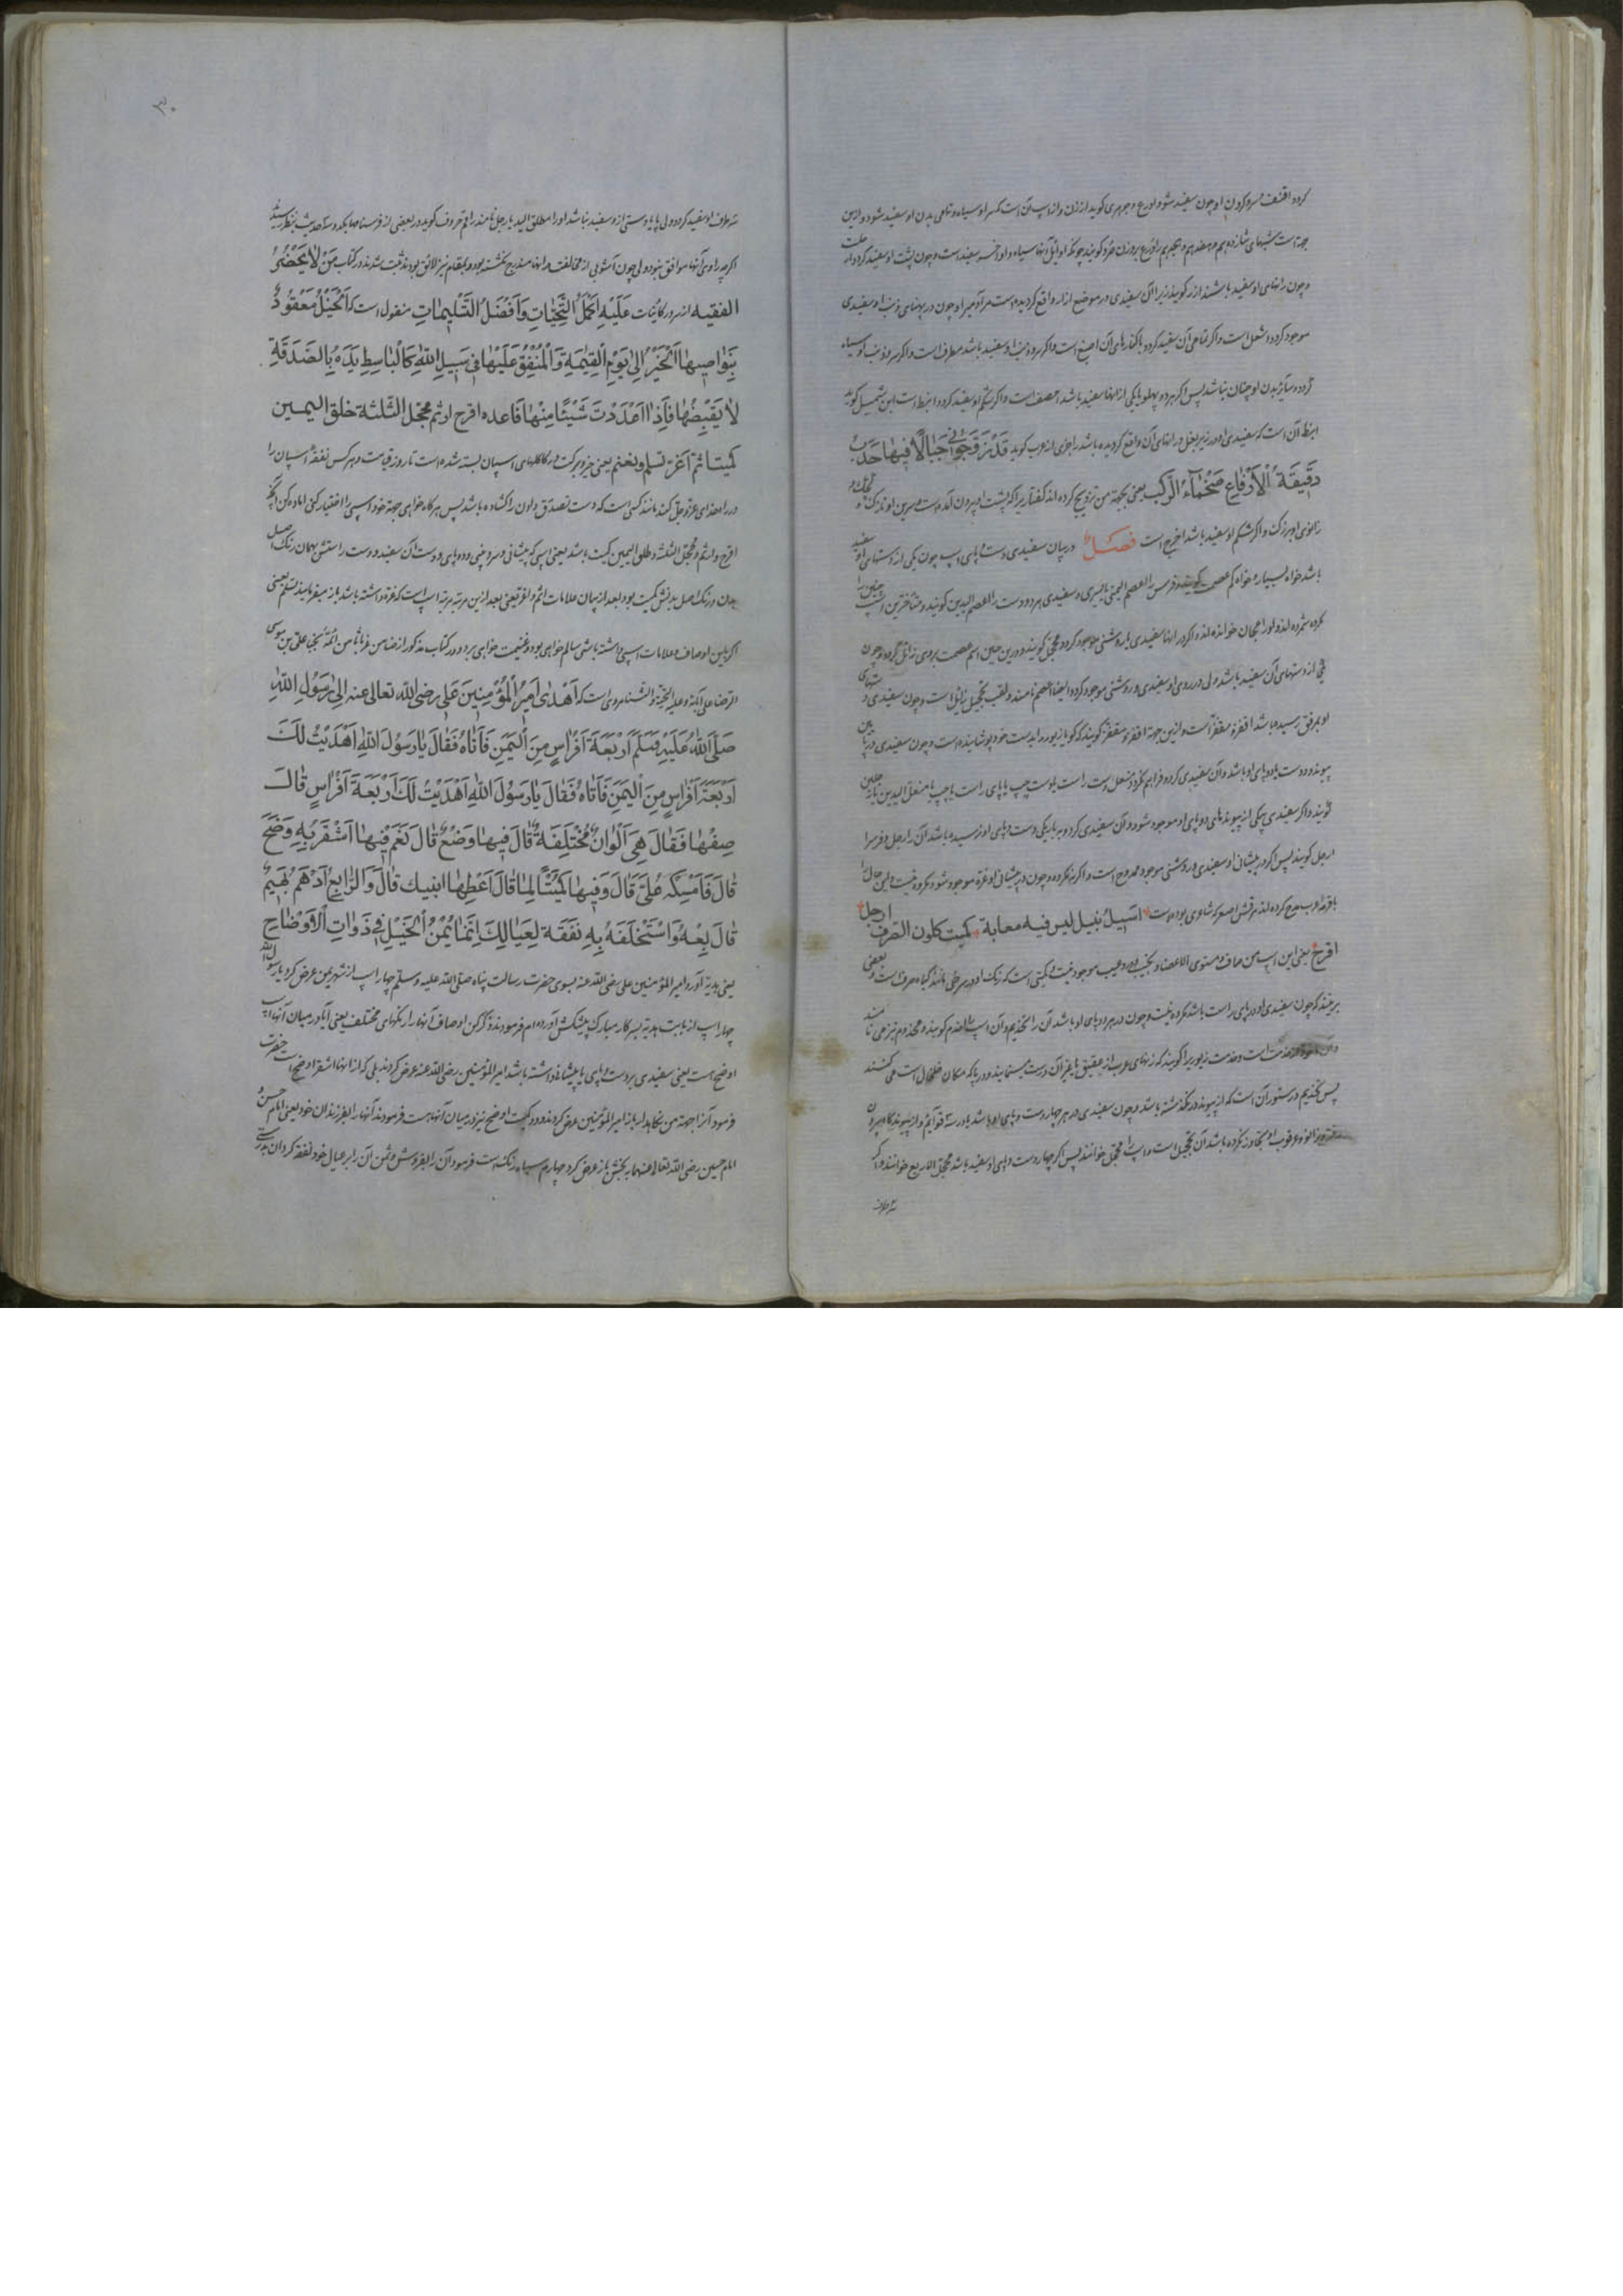 کردد اقنف سرو کردن او چون سفید شود ادرع و جوهری کوید از زن و از اسپ آن است که سر او سیاه و تمامی بدن او سفید شود و ازین
جهة است شبهای شانزدهم و هفدهم و هجدهم را درع بروزن صرد کویند چونکه اوایل آنها سیاه و اواخر سفید است و چون پشت او سفید کردد ارحلست
و چون رانهای او سفید باشند ازر کویند زیرا که آن سفیدی در موضع ازار واقع کردیده است و چون در پهنای ذنب او سفیدی
موجود کردد اشعل است و اگر تمامی آن سفید کردد یا کنارهای آن اصبغ است و اگر سر و ذنب او سفید باشد مطرف است و اگر سر و ذنب او سیاه
کردد و سایر بدن او چنان نباشد پس اگر هر دو پهلو یا یکی از انها سفید باشد اخصف است و اگر شکم او سفید کردد انبط است ابن شمیل کوید
انبط آن است که سفیدی او در زیر بغل و رانهای آن واقع کردیده باشد راجزی از عرب کوید قد زوجونی جیالا فیها حدب
دقیقة الارفاغ ضخماء الرکب یعنی بجهة من تزویج کرده اند کفتاری را که پشت او بیرون آمده است و سرین او نازک و
زانوی او بزرک و اگر شکم او سفید باشد اخرج است فصل در بیان سفیدی دست و پای اسپ چون یکی از دستهای او سفید
باشد خواه بسیار و خواه کم عصمت کویند و فرس را اعصم الیمنی یا الیسری و سفیدی هر دو دست را اعصم الیدین کویند و متأخرین اسپ چنین را
مکروه شمرده اند و اورا خوانده اند و اکر در انها سفیدی یا روشنی موجود کردد محجل کویند و درین حین اسم عصمت بروی زائل کردد و چون
یکی از دستهای آن سفید باشد ولی در روی او سفیدی و روشنی موجود کردد ایضا اعصم نامند و لقب تحجیل زائل است و چون سفیدی دستهای
او بمرفق رسیده باشد اقفز و مقفز است و ازین جهة اقفز و مقفز کویند که کویا زیور را بدست خود پوشانیده است و چون سفیدی در مابین
پیوند و دست یا دو پای او باشد و آن سفیدی کرد فراهم نکردد منعل دست راست یا دست چپ یا پای راست یا چپ یا منعل الیدین یا رجلین
کویند و اگر سفیدی یکی از پیوندهای دو پای او موجود شود و آن سفیدی کردد بر باریکی دست و پای او نرسیده باشد آن را رجل و فرس را
ارجل کویند پس اکر در پیشانی او سفیدی و روشنی موجود ممدوح است و اگر نه مکروه و چون در پیشانی او غره موجود شود مکروه نیست و این حال را
باقرحه عرب مدح کرده اند مرقش اصغر که شاعری بوده است اسیل نبیل لیس فیه معابة کمیت کلون الصرف ارجل
اقرح یعنی این اسپ من صاف و مستوی الاعضاء و نجیب و در او عیب موجود نیست و کمیتی است که رنک او در سرخی مانند کیاه صرف است و بعضی
برینند که چون سفیدی او در پای راست باشد مکروه نیست و چون در هر دو پای او باشد آن را تخدیم و آن اسپ را اخدم کویند و مخدوم نیز می نامند
و آن ماخوذ از خدمت است و خدمت زیوریرا کویند که زنهای عرب از عقیق یا غیر آن درست مینمایند و در پا که مکان خلخال است می کنند
پس تخدیم در ستور آن است که از پیوند در نکذشته باشد و چون سفیدی در هر چهار دست و پای او باشد یا در سه قوایم و از پیوندکاه بیرون
رفته و زانو و عرقوب او تجاوز نکرده باشد آن تحجیل است و اسپ را محجل خوانند پس اکر چهار دست و پای او سفید باشد محجل الاربع خوانند و اکر
سه طرف
۳۰
سه طرف او سفید کردد ولی پا یا دستی از و سفید نباشد او را مطلق الید یا رجل نامند راقم حروف کوید در بعضی از فرسنامها یک دو سه حدیث بنظر رسید
اکرچه راوی آنها موافق نبود ولی چون آشوبی از مخالفت در انها مندرج نکشته بود و بمقام نیز لائق بودند ثبت شدند در کتاب من لا یحضر
الفقیه از سرور کائنات علیه اکمل التحیات و افضل التسلیمات منقول است که اَلْخَیْلُ مَعْقُودٌ
بِنَوَاصِیهَا الْخَیْرُ اِلیٰ یَوْمِ الْقِیٰمَةِ وَ الْمُنْفِقُ عَلَیْهَا فِی سَبِیلِ اللّٰهِ کَالْبَاسِطِ یَدَهُ بِالصَّدَقَةِ
لٰا یَقْبِضُهٰا فَاِذٰا اَعْدَدْتَ شَیْئًا مِنْهٰا فَاعده اقرح ارثم محجل الثلثة طلق الیمین
کمیتا ثم اغر تسلم و تغنم یعنی خیر و برکت در کاکلهای اسپان بسته شده است تا روز قیامت و هر کس نفقهٔ اسپان را
در راه خدای عز و جل کند مانند کسی است که دست تصدق دادن را کشاده باشد پس هر کاه خواهی جهة خود اسپی را اختیار کنی اماده کن اسپ
اقرح و ارثم و محجل الثلثة و طلق الیمین کمیت باشد یعنی اسپی که پیشانی و سر بینی و دو پای و دست آن سفید و دست راستش بهمان رنک اصل
بدن و رنک اصل بدنش کمیت بود بعد از بیان علامات ثم اغر یعنی بعد ازین مرتبه مرتبه اسپ است که غره داشته باشد باز میفرمایند تسلم یعنی
اکر باین اوصاف و علامات اسپی داشته باشی سالم خواهی بود و غنیمت خواهی برد و در کتاب مذکور از ضامن غربا ثامن ائمهٔ نجبا علی بن موسی
الرضا علی آبائه و علیه التحیة و الثناء مروی است که اَهْدیٰ اَمِیرُ الْمُؤْمِنِینَ عَلِی رضی اللّٰه تعالی عنه اِلیٰ رَسُولِ اللّٰهِ
صَلَّی اللّٰهُ عَلَیْهِ وَسَلَّمَ اَرْبَعَةَ اَفْرَاسٍ مِنَ الْیَمَنِ فَاَتَاهُ فَقَالَ یَا رَسُولَ اللّٰهِ اَهْدَیْتُ لَکَ
اَرْبَعَةَ اَفْرَاسٍ مِنَ الْیَمَنِ فَاَتَاهُ فَقَالَ یَا رَسُولَ اللّٰهِ اَهْدَیْتُ لَکَ اَرْبَعَةَ اَفْرَاسٍ قَالَ
صِفْهَا فَقَالَ هِیَ اَلْوَانٌ مُخْتَلِفَةٌ قَالَ فِیهَا وَضَحٌ قَالَ نَعَمْ فِیهَا اَشْقَرُ بِهِ وَضَحٌ
قَالَ فَاَمْسِکْهُ عَلَیَّ قَالَ وَ فِیهَا کُمَیْتًا قَالَ اَعْطِهَا ابنیک قَالَ وَ الرَّابِعُ اَدْهَمُ بَهِیمٌ
قَالَ بِعْهُ وَ اسْتَخْلِفْهُ بِهِ نَفَقَةً لِعَیَالِکَ اِنَّمَا یُمْنُ الْخَیْلِ فِی ذَوَاتِ الْاَوْضَاحِ
یعنی هدیة آورد امیر المؤمنین علی رضی اللّٰه عنه بسوی حضرت رسالت پناه صلی اللّٰه علیه و سلم چهار اسپ از شهر یمن عرض کرد یا رسول اللّٰه
چهار اسپ از بابت هدیه بسرکار مبارک پیشکش آورده ام فرمودند ذکر کن اوصاف آنها را رنکهای مختلف یعنی آیا در میان آنها اسپ
اوضح است یعنی سفیدی بر دست و پای یا پیشانی داشته باشد امیر المؤمنین رضی اللّٰه عنه عرض کردند بلی که از انها اشقر اوضح است حضرت
فرمود آنرا جهة من نکاهدار باز امیر المؤمنین عرض کردند و دو کمیت اوضح نیز در میان آنهاست فرمودند آنها را بفرزندان خود یعنی امام حسن و
امام حسین رضی اللّٰه تعالی عنهما ببخش باز عرض کرد چهارم سیاه رنک است فرمود آن را بفروش و ثمن آن را بر عیال خود نفقه کردان بدرستی